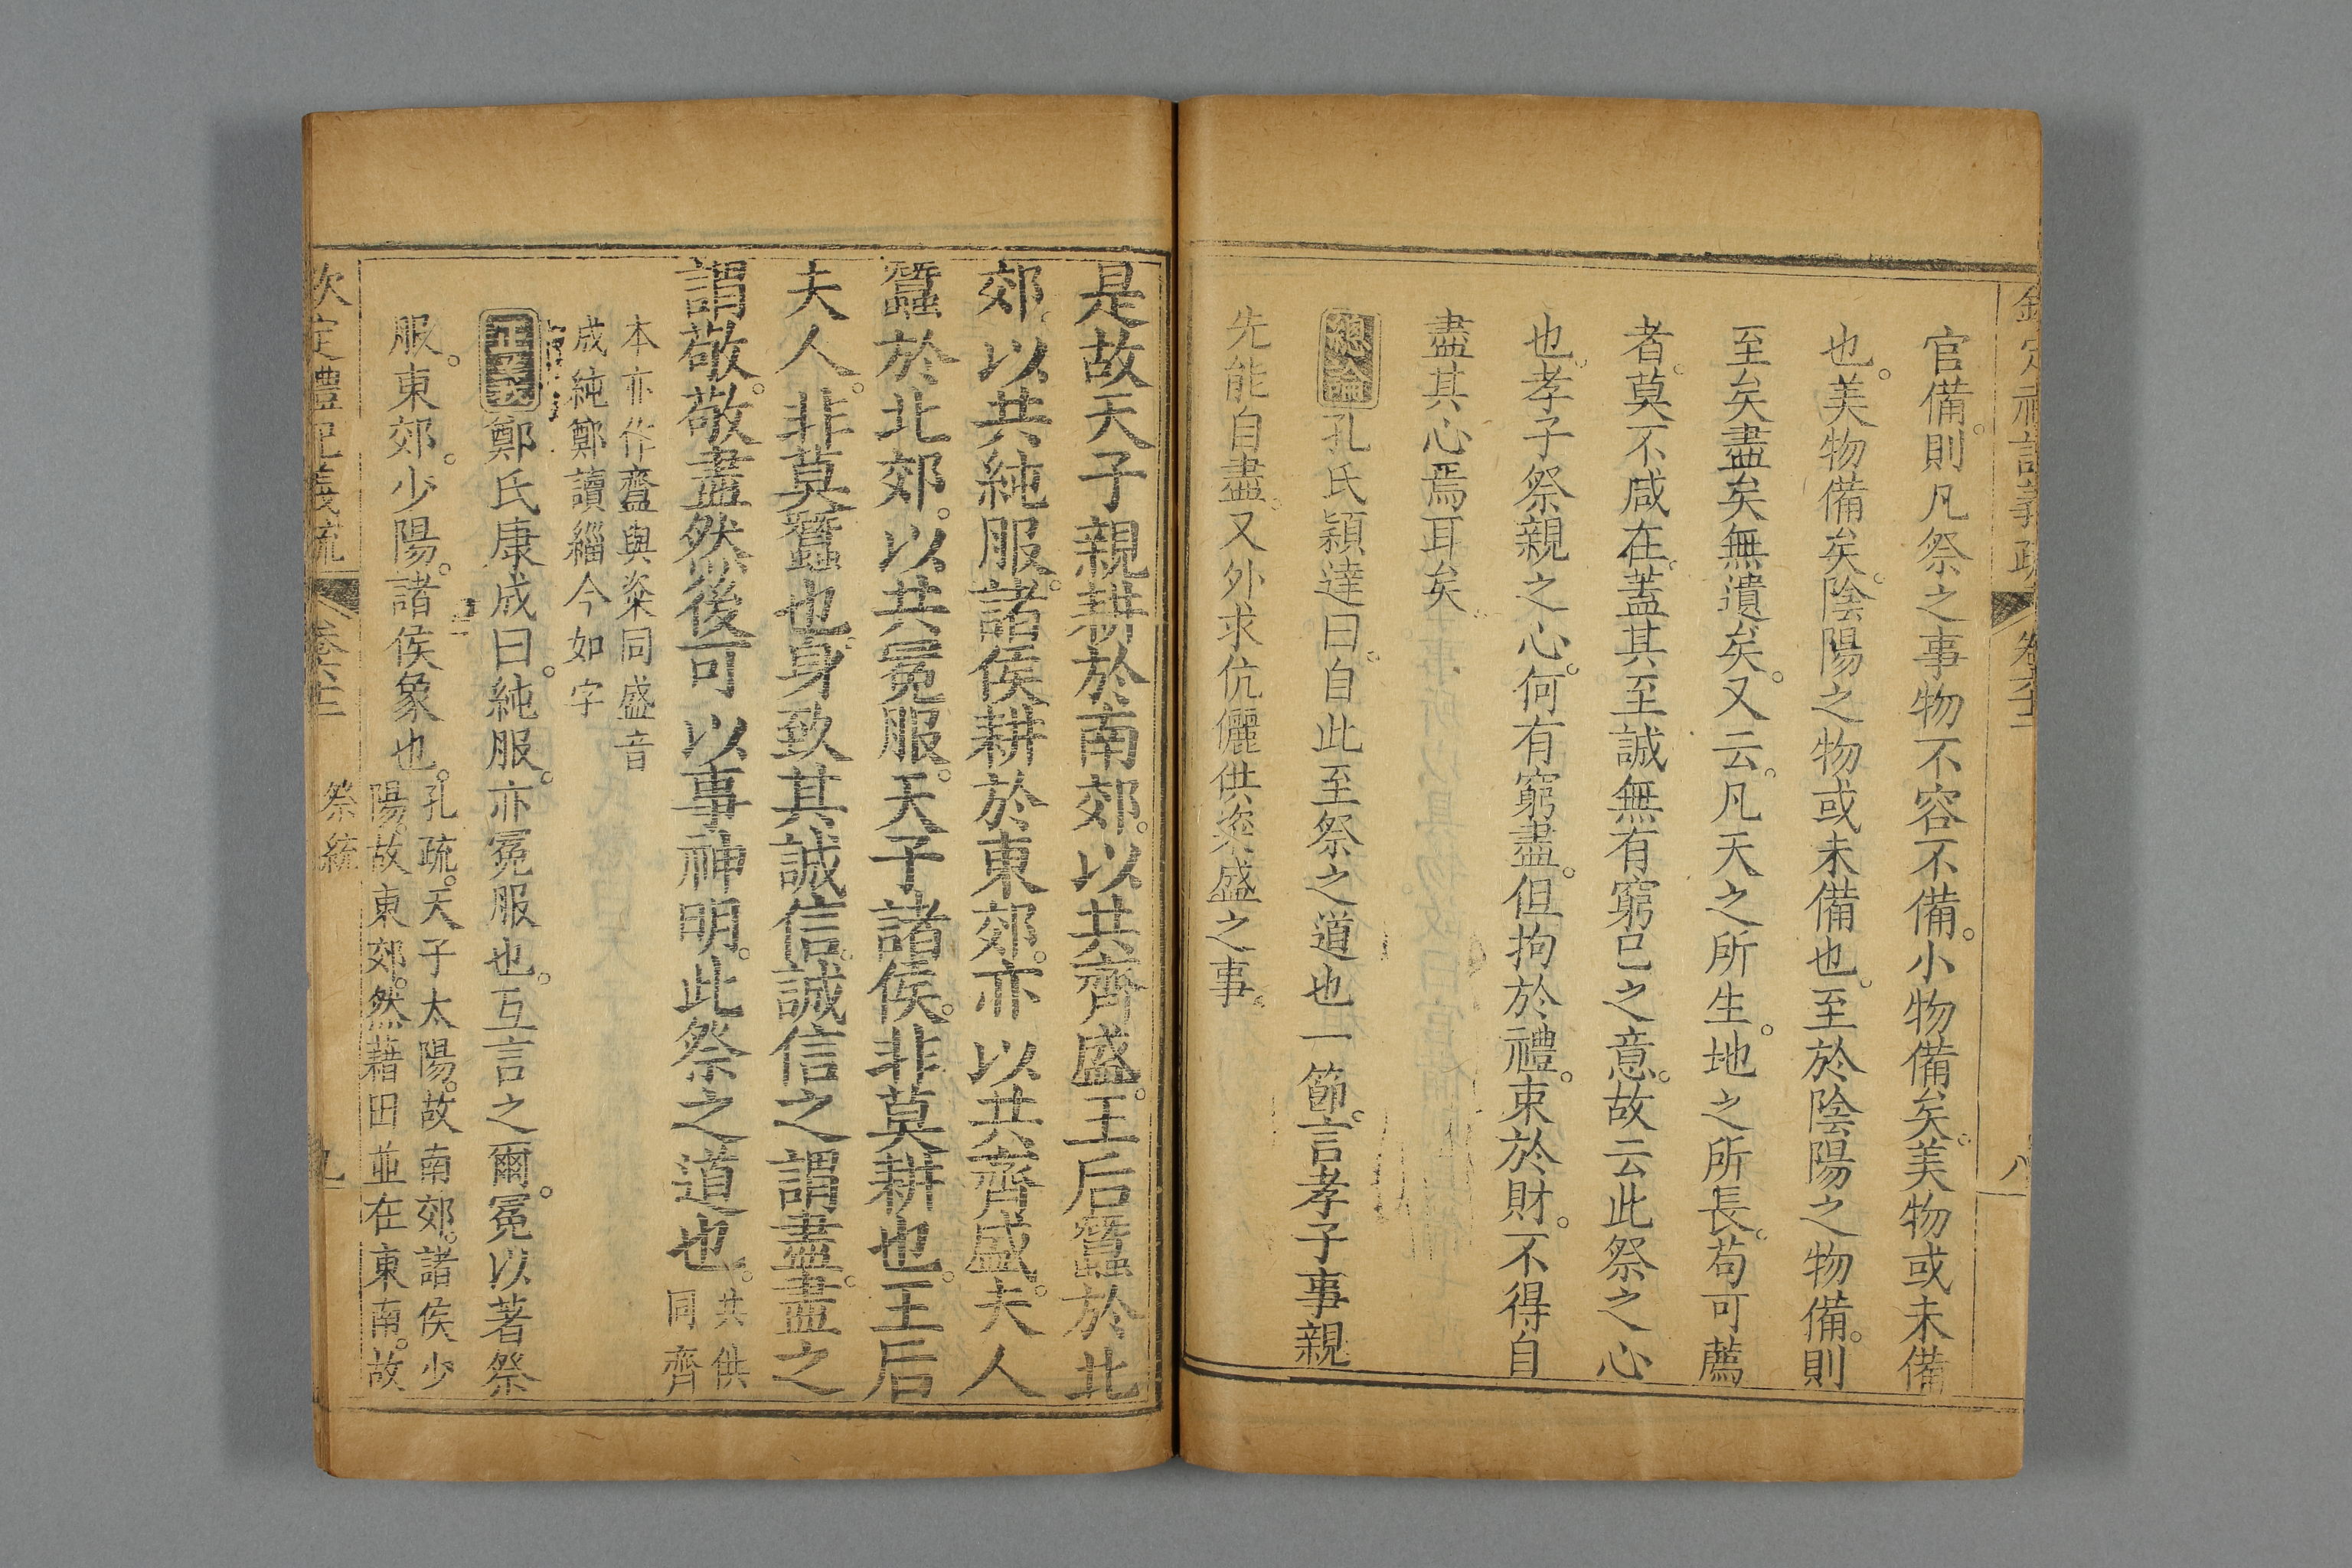 官備。則凡祭之事物不容不備。小物備矣。美物或未備
也。美物備矣。陰陽之物或未備也。至於陰陽之物備。則
至矣盡矣無遺矣。又云。凡天之所生。地之所長。苟可薦
者。莫不咸在。蓋其至誠無有窮已之意。故云此祭之心
也。孝子祭親之心。何有窮盡。但拘於禮。束於財。不得自
盡其心焉耳矣。
總論孔氏穎達曰。自此至祭之道也一節。言孝子事親
先能自盡。又外求伉儷供粢盛之事。
是故天子親耕於南郊。以共齊盛。王后蠶於北
郊。以共純服。諸侯耕於東郊。亦以共齊盛。夫人
蠶於北郊。以共冕服。天子諸侯。非莫耕也。王后
夫人。非莫蠶也。身致其誠信。誠信之謂盡。盡之
謂敬。敬盡然後可以事神明。此祭之道也。共供
同齊
本亦作齍與粢同盛音
成純鄭讀緇今如字
正義鄭氏康成曰。純服。亦冕服也。互言之爾。冕以著祭
服。東郊。少陽。諸侯象也。孔疏。天子太陽。故南郊。諸侯少
陽。故東郊。然藉田並在東南。故
欽定禮記義疏 卷六十二 祭統 九